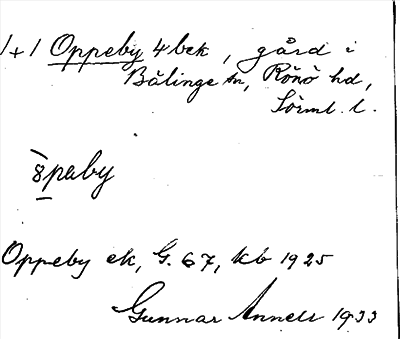 1+1 Oppeby 4 bck, gård i
Bälinge sn, Rönö hd,
Sörml. l.
8paby
Oppeby ek, G. 67, kb 1925
Gunnar Annell 1933